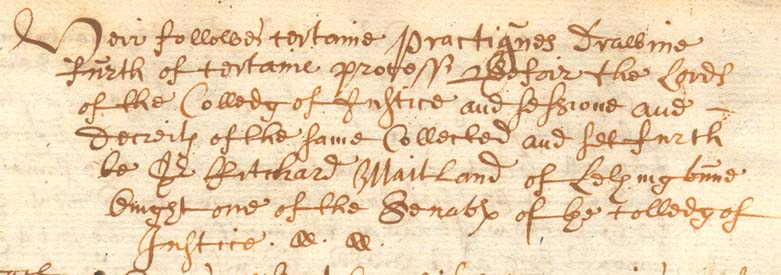 Heir followes certaine practiques drawine
furth of certaine process befoir the Lords
of the Colledg of Justice and sessione and
decreits of the same Collected and set furth
be Sr Ritchard Maitland of Lethingtune
knight one of the Senators of the colledg of
Justice. &. &.